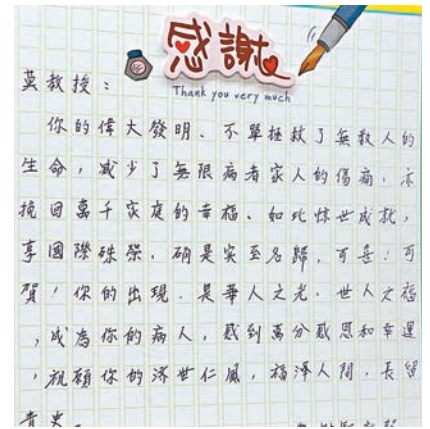 感謝
Thank you very much
莫教授：
你的偉大發明、不單拯救了無數人的
生命，減少了無限病者家人的傷痛，亦
挽回萬千家庭的幸福、如此惊世成就，
享國際殊榮．確是实至名歸．可喜！可
賀！你的出現．是華人之光．世人之福
，成為你的病人，感到萬分感恩和幸運
，祝願你的济世仁風，福澤人間．長留
青史。